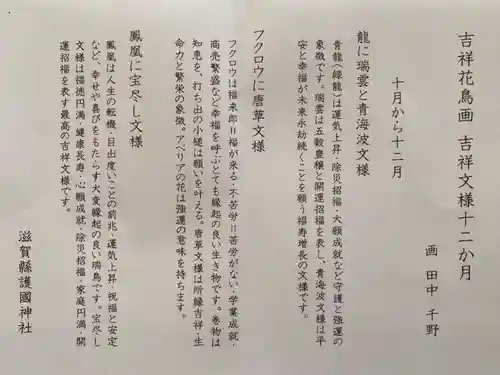 吉祥花鳥画 吉祥文様十二か月
画 田中 千野
十月から十二月
龍に瑞雲と青海波文様
青龍(緑龍)は運気上昇・除災招福・大願成就など守護と強運の
象徴です。瑞雲は五穀豊穣と開運招福を表し、青海波文様は平
安と幸福が未来永劫続くことを願う福寿増長の文様です。
フクロウに唐草文様
フクロウは福来郎=福が来る・不苦労=苦労がない・学業成就・
商売繁盛など幸福を呼ぶとても縁起の良い生き物です。巻物は
知恵を、打ち出の小槌は願いを叶える。唐草文様は所縁吉祥・生
命力と繁栄の象徴。アベリアの花は強運の意味を持ちます。
鳳凰に宝尽し文様
鳳凰は人生の転機・目出度いことの前兆・運気上昇・祝福と安定
など、幸せや喜びをもたらす大変縁起の良い瑞鳥です。宝尽し
文様は福徳円満・健康長寿・心願成就・除災招福・家庭円満・開
運招福を表す最高の吉祥文様です。
滋賀縣護國神社